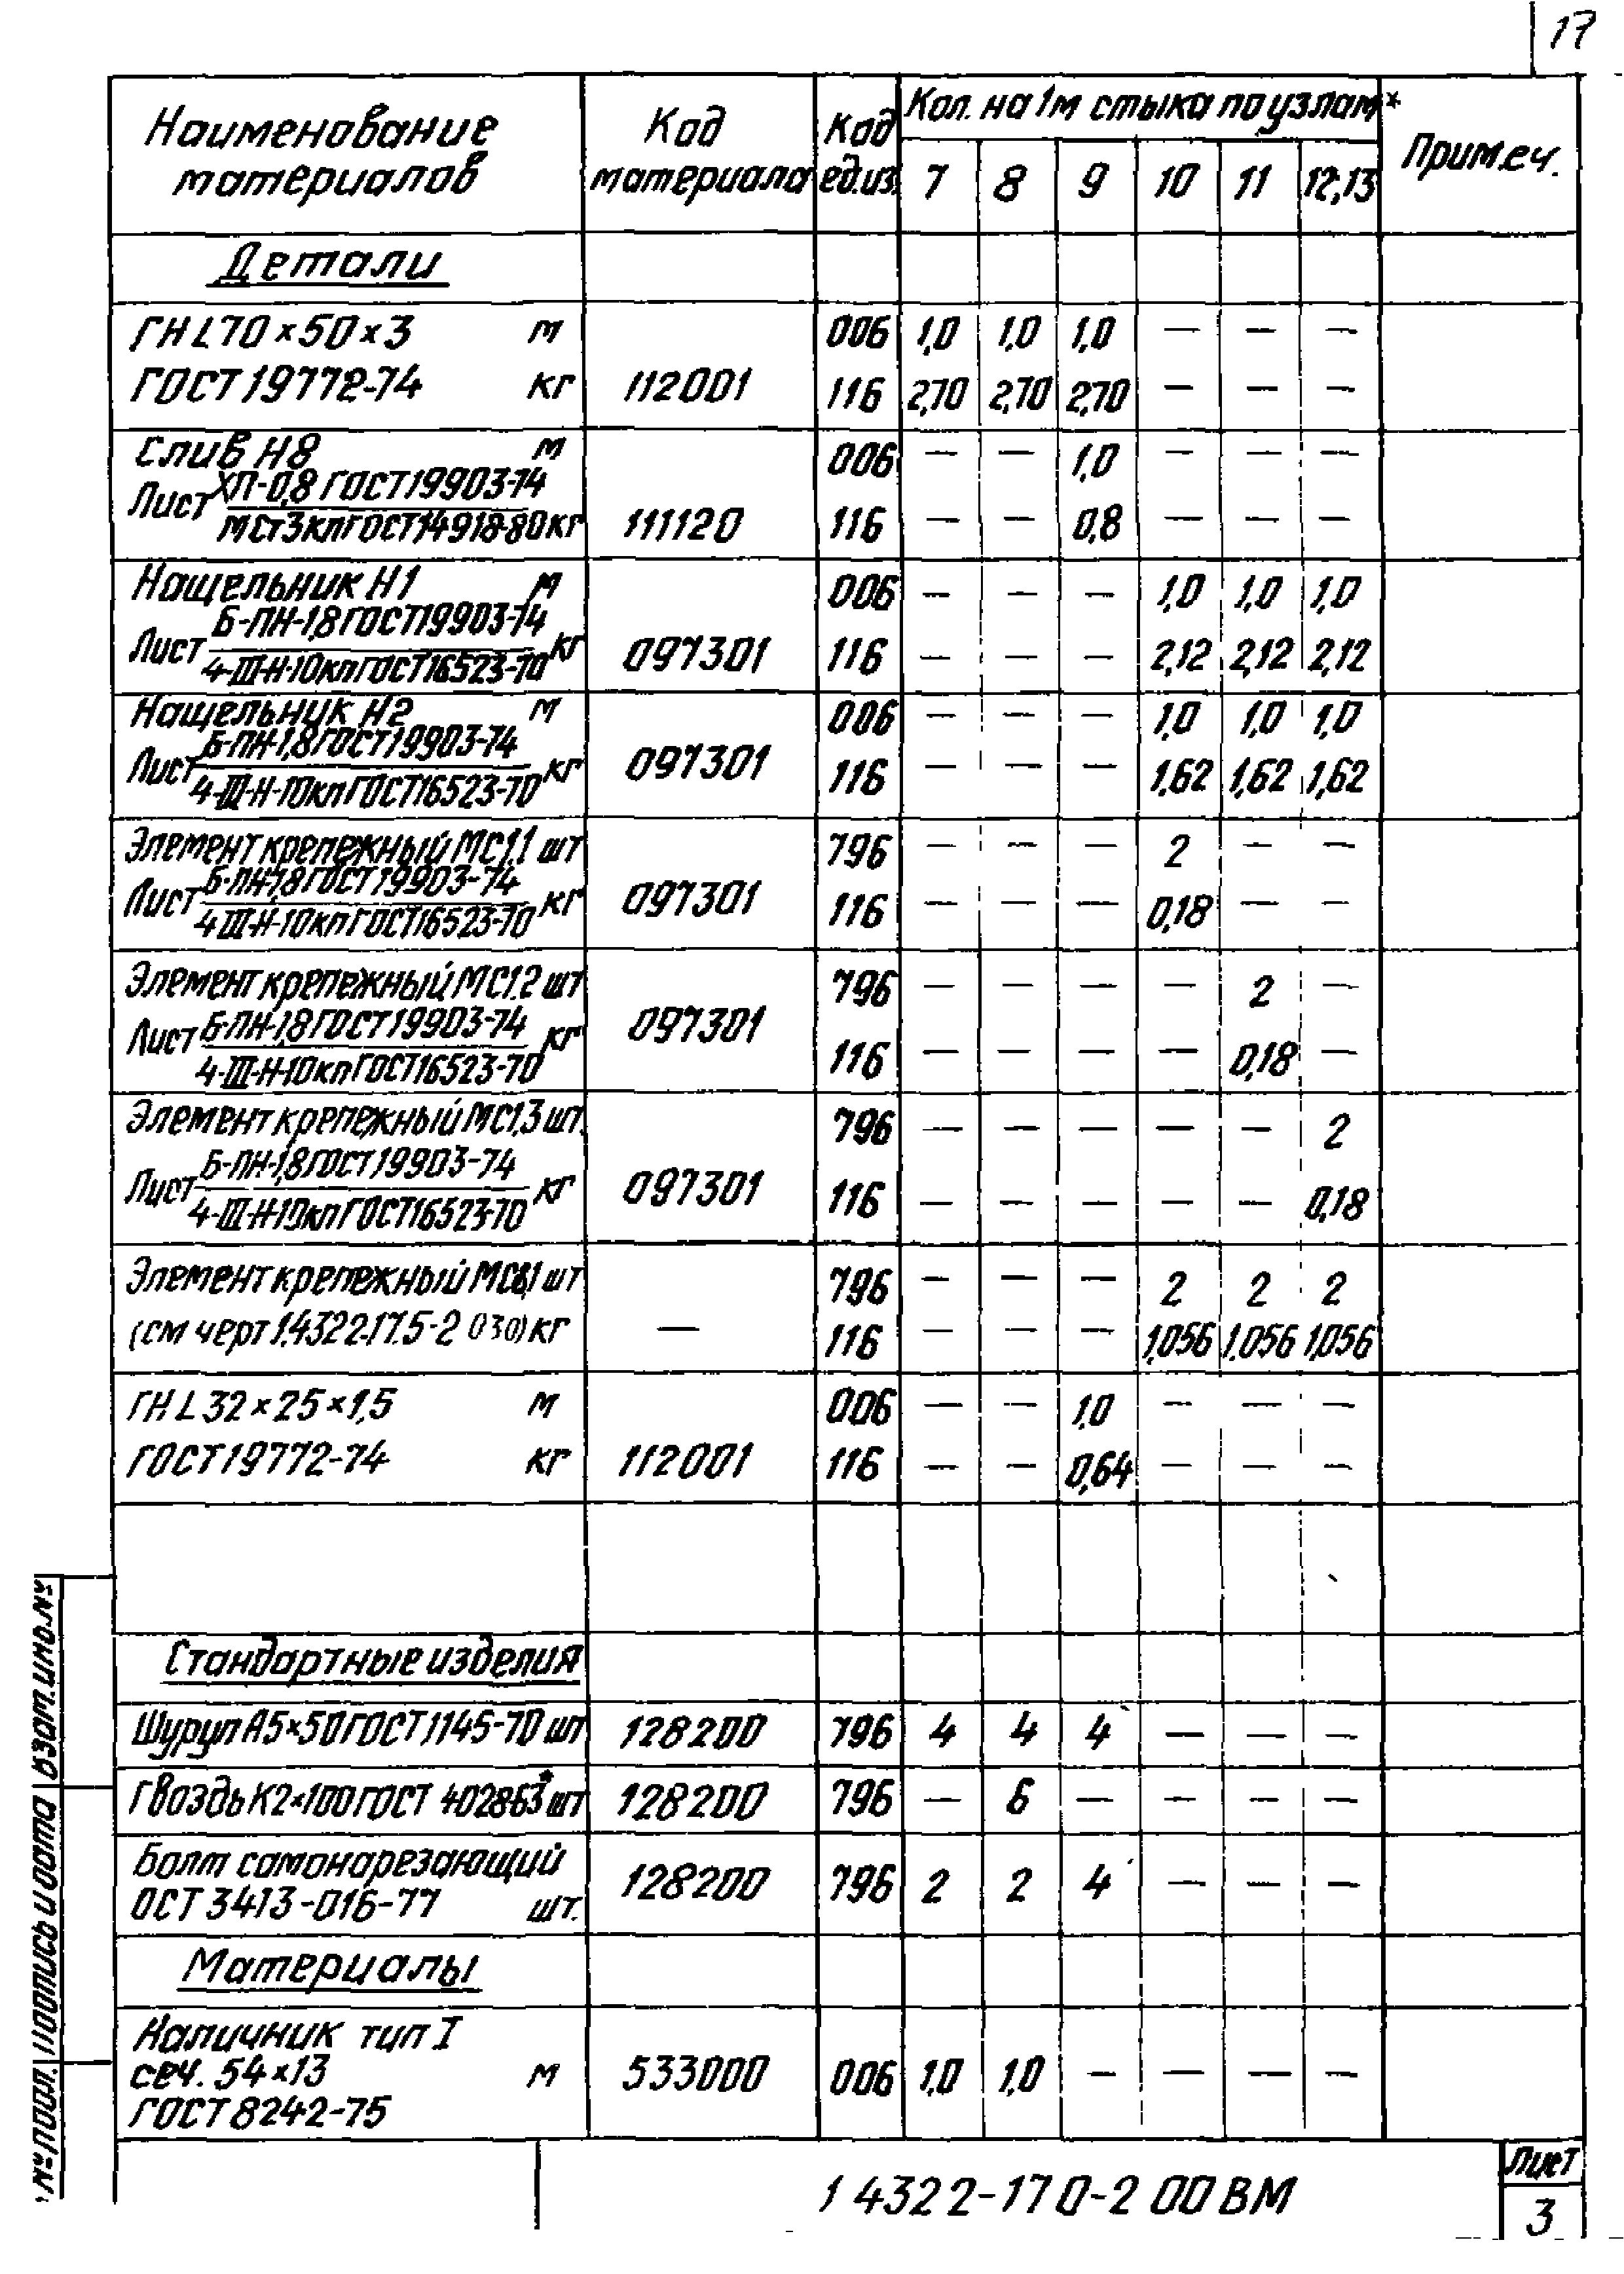 17
Наименование материалов | Код материала | Код ед.из. | Кол. на 1м стыка по узлам* | Примеч.
7 | 8 | 9 | 10 | 11 | 12,13
Детали
ГН L 70×50×3 м | 006 | 1,0 | 1,0 | 1,0 | — | — | —
ГОСТ 19772-74 кг | 112001 | 116 | 2,70 | 2,70 | 2,70 | — | — | —
Слив Н8 м | 006 | — | — | 1,0 | — | — | —
Лист ХП-0,8 ГОСТ 19903-74
МСт3кп ГОСТ 14918-80 кг | 111120 | 116 | — | — | 0,8 | — | — | —
Нащельник Н1 м | 006 | — | — | — | 1,0 | 1,0 | 1,0
Лист Б-ПН-1,8 ГОСТ 19903-74
4-III-Н-10кп ГОСТ 16523-70 кг | 097301 | 116 | — | — | — | 2,12 | 2,12 | 2,12
Нащельник Н2 м | 006 | — | — | — | 1,0 | 1,0 | 1,0
Лист Б-ПН-1,8 ГОСТ 19903-74
4-III-Н-10кп ГОСТ 16523-70 кг | 097301 | 116 | — | — | — | 1,62 | 1,62 | 1,62
Элемент крепежный МС1.1 шт | 796 | — | — | — | 2 | — | —
Лист Б-ПН-1,8 ГОСТ 19903-74
4-III-Н-10кп ГОСТ 16523-70 кг | 097301 | 116 | — | — | — | 0,18 | — | —
Элемент крепежный МС1.2 шт | 796 | — | — | — | — | 2 | —
Лист Б-ПН-1,8 ГОСТ 19903-74
4-III-Н-10кп ГОСТ 16523-70 кг | 097301 | 116 | — | — | — | — | 0,18 | —
Элемент крепежный МС1.3 шт. | 796 | — | — | — | — | — | 2
Лист Б-ПН-1,8 ГОСТ 19903-74
4-III-Н-10кп ГОСТ 16523-70 кг | 097301 | 116 | — | — | — | — | — | 0,18
Элемент крепежный шт | 796 | — | — | — | 2 | 2 | 2
(см черт 1.432.2-17.5-2 030) кг | — | 116 | — | — | — | 1,056 | 1.056 | 1,056
ГН L 32×25×1,5 м | 006 | — | — | 1,0 | — | — | —
ГОСТ 19772-74 кг | 112001 | 116 | — | — | 0,64 | — | — | —
Стандартные изделия
Шуруп А5×50 ГОСТ 1145-70 шт | 128200 | 796 | 4 | 4 | 4 | — | — | —
Гвоздь К2×100 ГОСТ 402863* шт | 128200 | 796 | — | 6 | — | — | — | —
Болт самонарезающий
ОСТ 3413-016-77 шт. | 128200 | 796 | 2 | 2 | 4 | — | — | —
Материалы
Наличник тип I
сеч. 54×13 м | 533000 | 006 | 1,0 | 1,0 | — | — | — | —
ГОСТ 8242-75
№ подл. | Подпись и дата | Взам.инв.№
1 432 2-17 0-2 00 ВМ
Лист
3